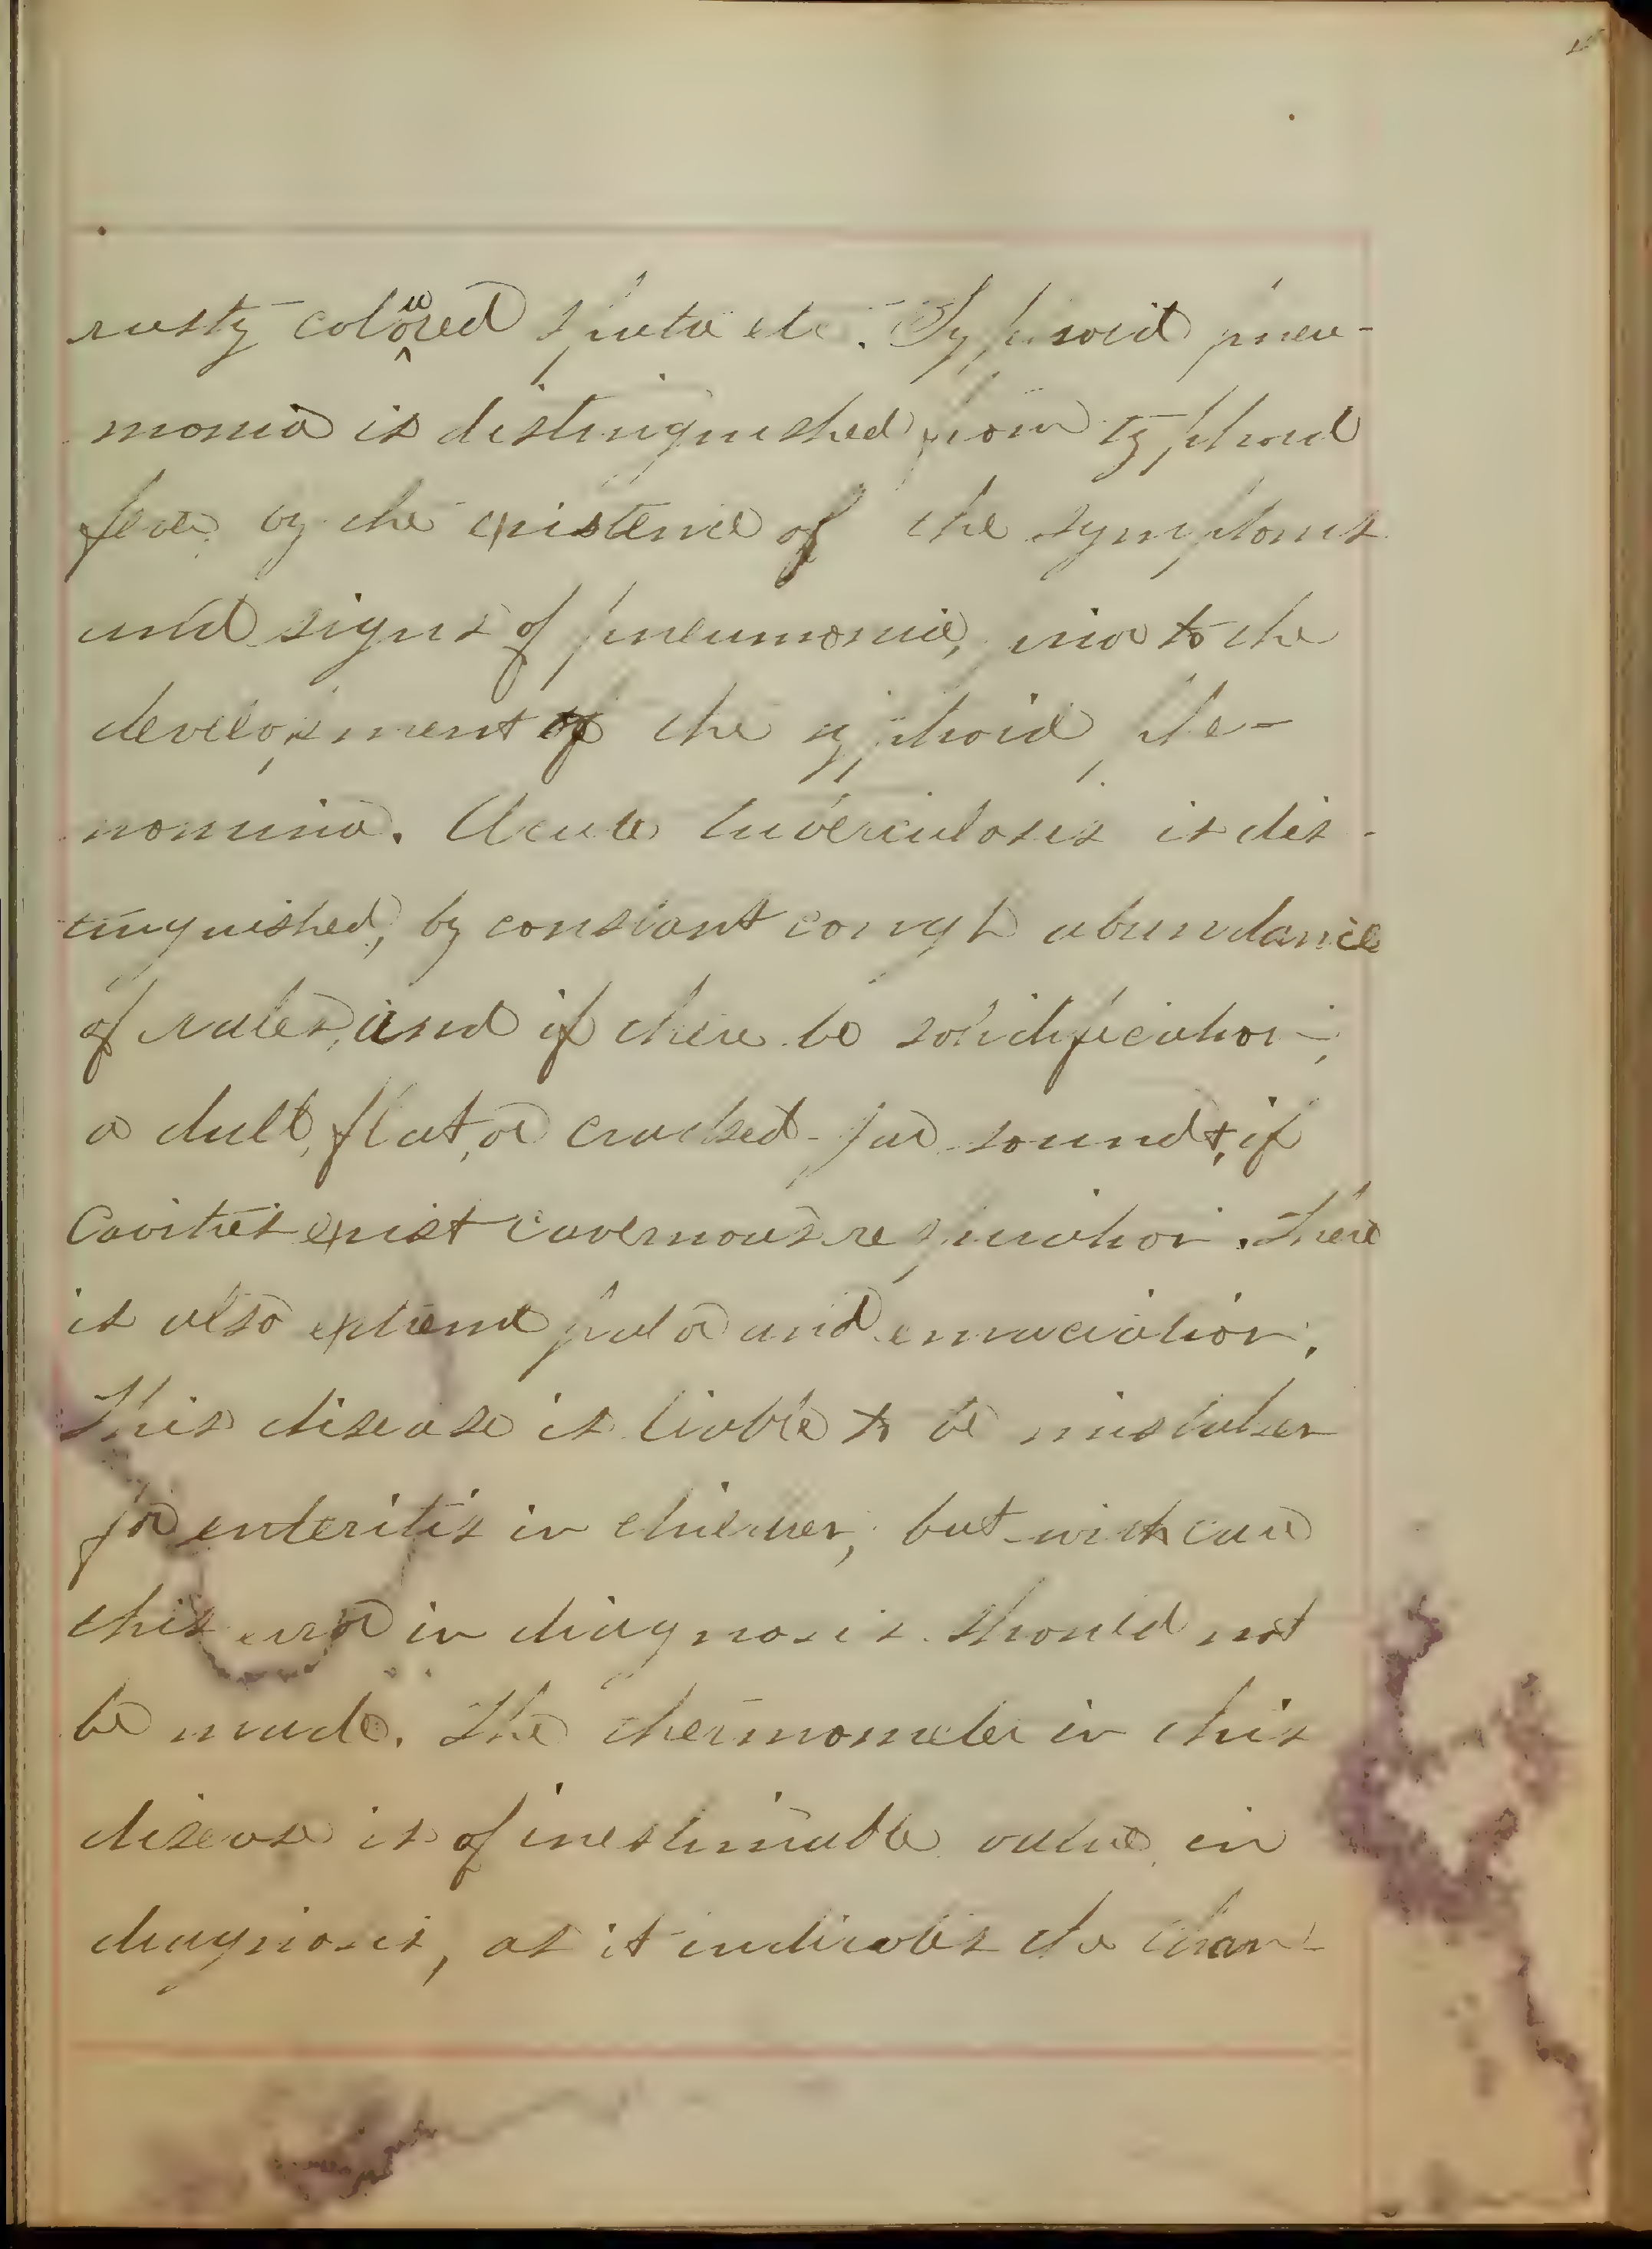 rusty coloured sputa etc. Typhoid pneu-
monia is distinguished from typhoid
fever by the existence of the symptoms
and signs of pneumonia, prior to the
development of the typhoid phe-
nomina. Acute tuberculosis is dis-
tinguished, by constant cough abundance
of rales, and if there be solidification,
a dull, flat, or cracked-jar sound &, if
Cavities exist cavernous respiration. There
is also extreme palor and emaciation.
This disease is liable to be mistaken
for enteritis in children, but with care
this error in diagnosis should not
be made. The thermometer in this
disease is of inestimable value in
diagnosis, as it indicates the